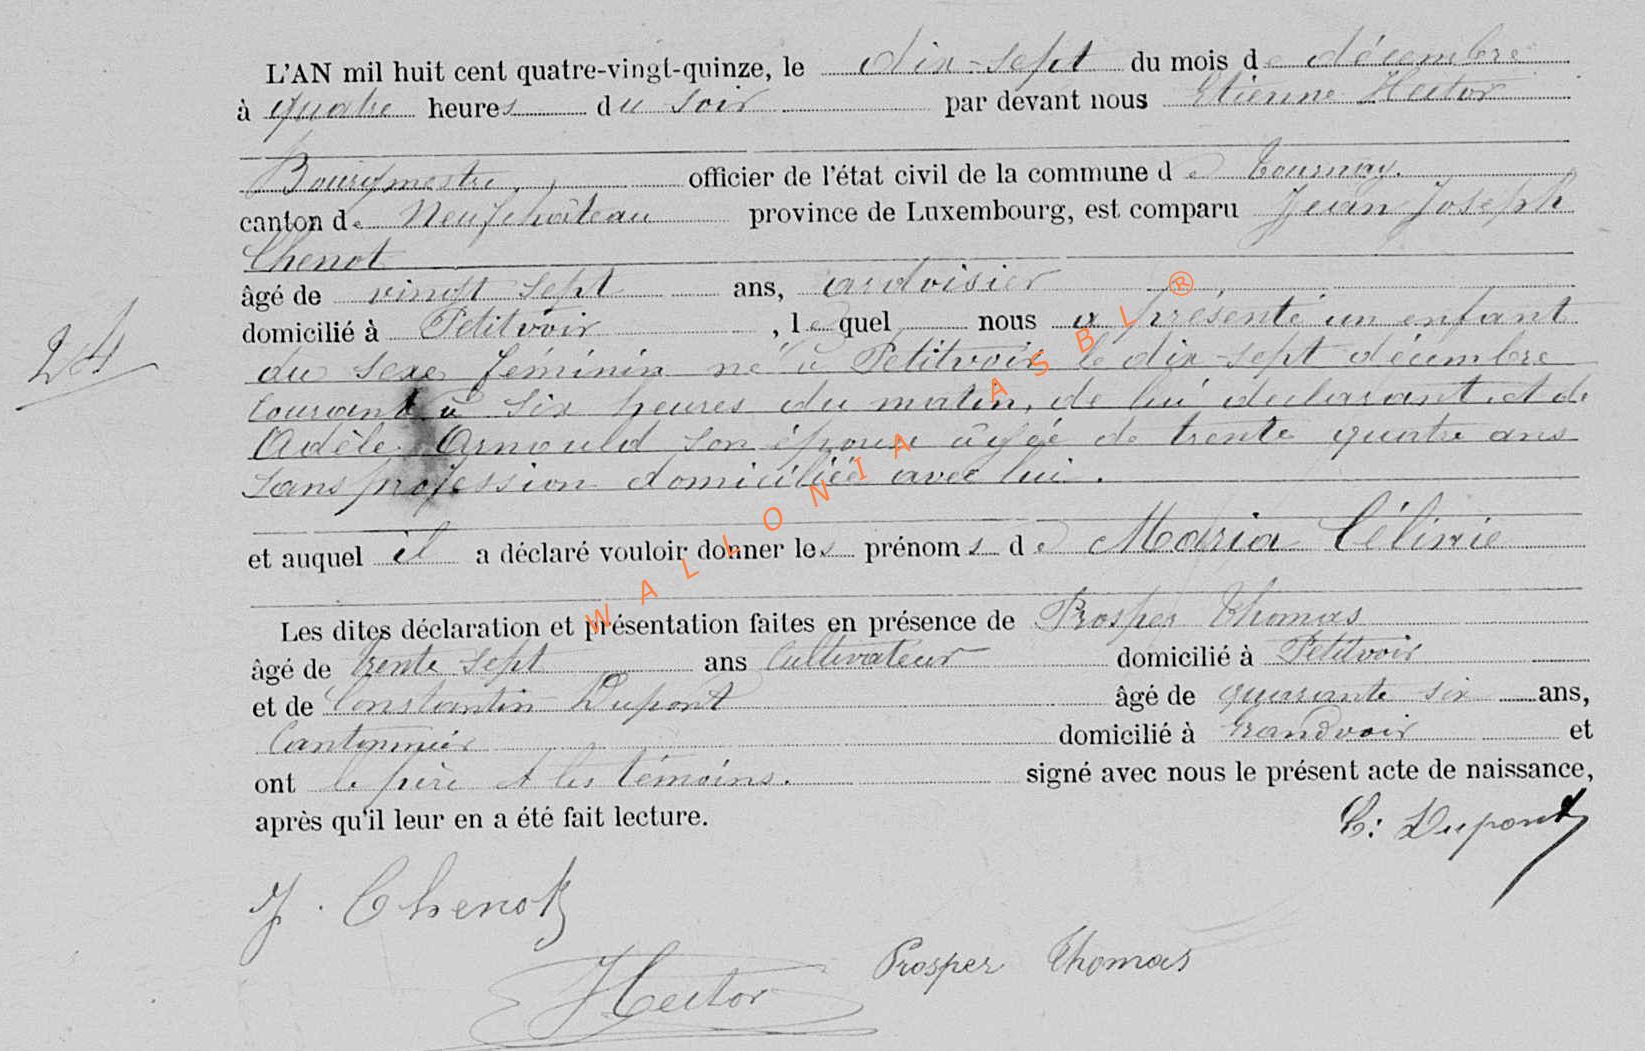 L'AN mil huit cent quatre-vingt-quinze, le dix-sept du mois de décembre
à quatre heures du soir par devant nous Etienne Hector
Bourgmestre, officier de l'état civil de la commune de Tournay.
canton de Neufchâteau province de Luxembourg, est comparu Jean Joseph
Chenot
âgé de vingt sept ans, ardoisier
domicilié à Petitvoir, lequel nous a présenté un enfant
24
du sexe féminin né à Petitvoir le dix-sept décembre
courant à six heures du matin, de lui déclarant et de
Adèle Arnould son épouse âgée de trente quatre ans
sans profession domiciliée avec lui.
et auquel il a déclaré vouloir donner les prénoms de Maria Célinie
Les dites déclaration et présentation faites en présence de Prosper Thomas
âgé de trente sept ans Cultivateur domicilié à Petitvoir
et de Constantin Dupont âgé de quarante six ans,
Cantonnier domicilié à Grandvoir et
ont le père et les témoins. signé avec nous le présent acte de naissance,
après qu'il leur en a été fait lecture.
C: Dupont
J. Chenot
Prosper Thomas
Hector
WALLONIA ASBL ®